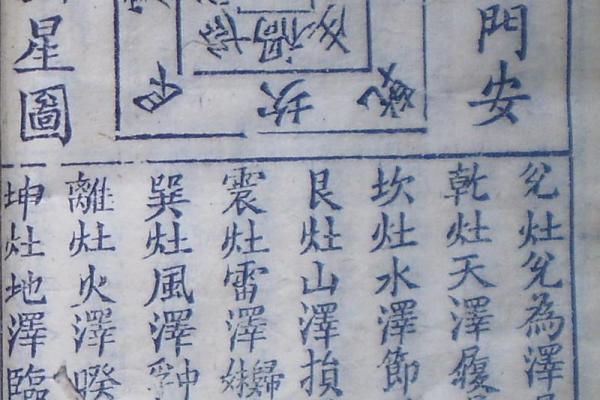 門安
坎
星圖
兌灶兌為澤
乾灶天澤履
坎灶水澤節
艮灶山澤損
震灶雷澤歸妹
巽灶風澤中孚
離灶火澤睽
坤灶地澤臨